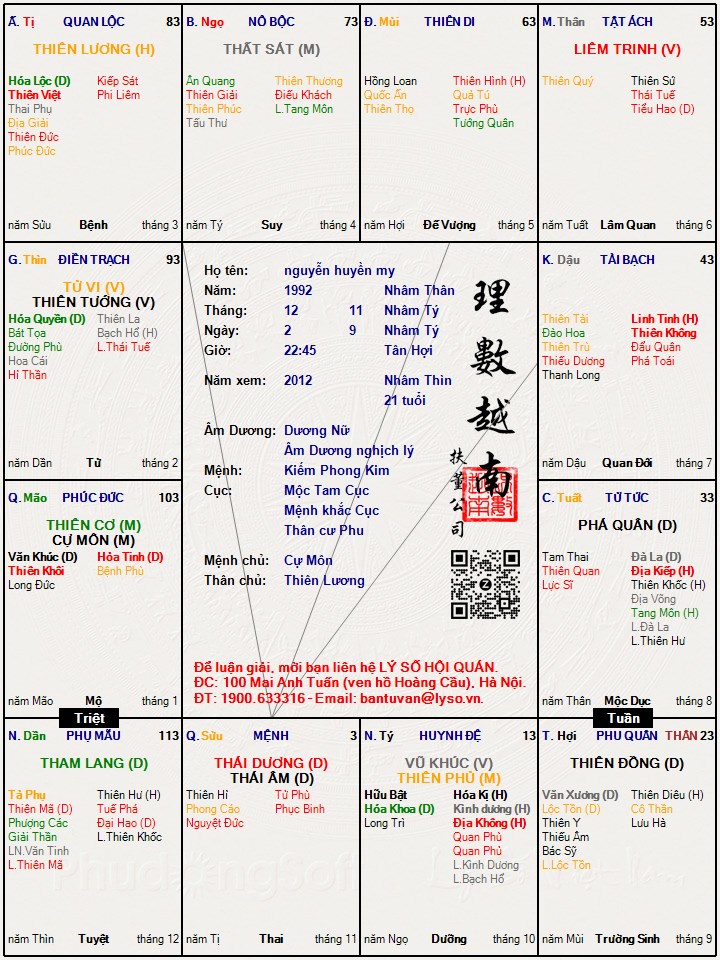 Ấ. Tị QUAN LỘC 83
THIÊN LƯƠNG (H)
Hóa Lộc (D) Kiếp Sát
Thiên Việt Phi Liêm
Thai Phụ
Địa Giải
Thiên Đức
Phúc Đức
năm Sửu Bệnh tháng 3
B. Ngọ NÔ BỘC 73
THẤT SÁT (M)
Ân Quang Thiên Thương
Thiên Giải Điếu Khách
Thiên Phúc L.Tang Môn
Tấu Thư
năm Tý Suy tháng 4
Đ. Mùi THIÊN DI 63
Hồng Loan Thiên Hình (H)
Quốc Ấn Quả Tú
Thiên Thọ Trực Phù
Tướng Quân
năm Hợi Đế Vượng tháng 5
M. Thân TẬT ÁCH 53
LIÊM TRINH (V)
Thiên Quý Thiên Sứ
Thái Tuế
Tiểu Hao (D)
năm Tuất Lâm Quan tháng 6
G. Thìn ĐIỀN TRẠCH 93
TỬ VI (V)
THIÊN TƯỚNG (V)
Hóa Quyền (D) Thiên La
Bát Tọa Bạch Hổ (H)
Đường Phù L.Thái Tuế
Hoa Cái
Hỉ Thần
năm Dần Tử tháng 2
Họ tên: nguyễn huyền my
Năm: 1992 Nhâm Thân
Tháng: 12 11 Nhâm Tý
Ngày: 2 9 Nhâm Tý
Giờ: 22:45 Tân Hợi
Năm xem: 2012 Nhâm Thìn
21 tuổi
Âm Dương: Dương Nữ
Âm Dương nghịch lý
Mệnh: Kiếm Phong Kim
Cục: Mộc Tam Cục
Mệnh khắc Cục
Thân cư Phu
Mệnh chủ: Cự Môn
Thân chủ: Thiên Lương
理數越南
扶董公司
Z
Để luận giải, mời bạn liên hệ LÝ SỐ HỘI QUÁN.
ĐC: 100 Mai Anh Tuấn (ven hồ Hoàng Cầu), Hà Nội.
ĐT: 1900.633316 - Email: bantuvan@lyso.vn.
K. Dậu TÀI BẠCH 43
Thiên Tài Linh Tinh (H)
Đào Hoa Thiên Không
Thiên Trù Đẩu Quân
Thiếu Dương Phá Toái
Thanh Long
năm Dậu Quan Đới tháng 7
Q. Mão PHÚC ĐỨC 103
THIÊN CƠ (M)
CỰ MÔN (M)
Văn Khúc (D) Hỏa Tinh (D)
Thiên Khôi Bệnh Phù
Long Đức
năm Mão Mộ tháng 1
C. Tuất TỬ TỨC 33
PHÁ QUÂN (D)
Tam Thai Đà La (D)
Thiên Quan Địa Kiếp (H)
Lực Sĩ Thiên Khốc (H)
Địa Võng
Tang Môn (H)
L.Đà La
L.Thiên Hư
năm Thân Mộc Dục tháng 8
Triệt
Tuần
N. Dần PHỤ MẪU 113
THAM LANG (D)
Tả Phụ Thiên Hư (H)
Thiên Mã (D) Tuế Phá
Phượng Các Đại Hao (D)
Giải Thần L.Thiên Khốc
LN.Văn Tinh
L.Thiên Mã
năm Thìn Tuyệt tháng 12
Q. Sửu MỆNH 3
THÁI DƯƠNG (D)
THÁI ÂM (D)
Thiên Hỉ Tử Phù
Phong Cáo Phục Binh
Nguyệt Đức
năm Tị Thai tháng 11
N. Tý HUYNH ĐỆ 13
VŨ KHÚC (V)
THIÊN PHỦ (M)
Hữu Bật Hóa Kị (H)
Hóa Khoa (D) Kình dương (H)
Long Trì Địa Không (H)
Quan Phù
Quan Phủ
L.Kình Dương
L.Bạch Hổ
năm Ngọ Dưỡng tháng 10
T. Hợi PHU QUÂN THÂN 23
THIÊN ĐỒNG (D)
Văn Xương (D) Thiên Diêu (H)
Lộc Tồn (D) Cô Thần
Thiên Y Lưu Hà
Thiếu Âm
Bác Sỹ
L.Lộc Tồn
năm Mùi Trường Sinh tháng 9